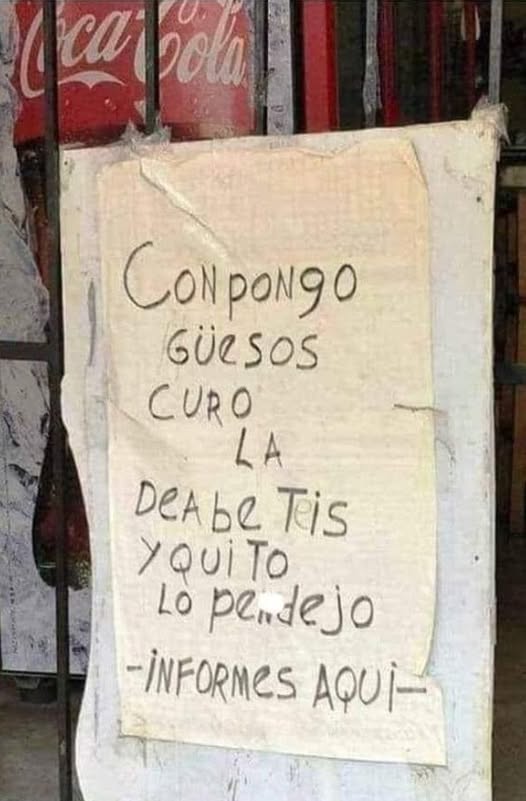 Coca-Cola
CONPONGO
GÜESOS
CURO
LA
DEAbeTeis
Y QUITO
LO Pendejo
-INFORMES AQUI-